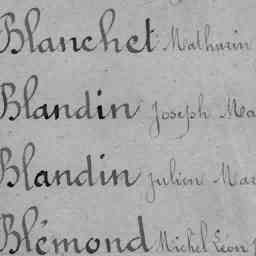 Blanchet Mathurin
Blandin Joseph Ma
Blandin Julien Mar
Blémond Michel Léon